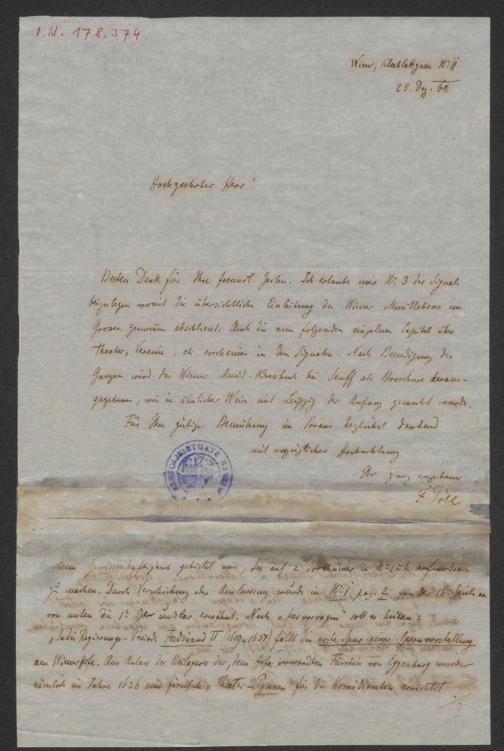 I.N. 178.374
Wien, Kleeblattgasse No 11
25. Dez. 68
Hochgeehrter Herr!
Besten Dank für Ihre freundl. Zeilen. Ich erlaube mir No 3 der Signale
beizulegen womit die übersichtliche Einleitung des Wiener Musiklebens im
Grossen Ganzen abschliesst. Auch die nun folgenden einzelnen Capitel über
Theater, Vereine, etc. erscheinen in den Signalen. Nach Beendigung des
Ganzen wird das Wiener Musik- bei Senff als Broschüre heraus-
gegeben, wie in ähnlicher Weise mit Leipzig der Anfang gemacht wurde.
Für Ihre gütige Bemühung im Voraus dankend
mit vorzüglicher Hochachtung
Ihr ganz ergebener
Pohl
Gewissenhaftigkeit gebietet mir, Sie auf 2 in No 1 & 2 aufmerksam
zu machen. Durch Verschiebung oder Auslassung wurde in No 1, page 2 von der 16. Zeile an
von unten die 1. Oper undklar erwähnt. Nach soll es heissen:
Regierungs-Periode Ferdinand II (1619-1637) fällt die erste Spur einer Opernvorstellung
am Wienerhofe. Aus Anlass des des dem Hofe verwandten Fürsten von Eggenberg wurde
nämlich im Jahre 1626 ein förmliches Theater für die Komödianten errichtet